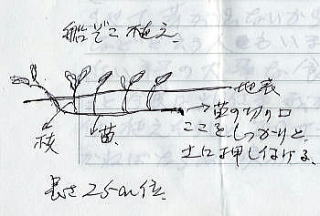 船ぞこ植え、
地表
→苗の切り口
ここをしっかりと、
土に押しなげる。
枝
苗
長さ25cm位、